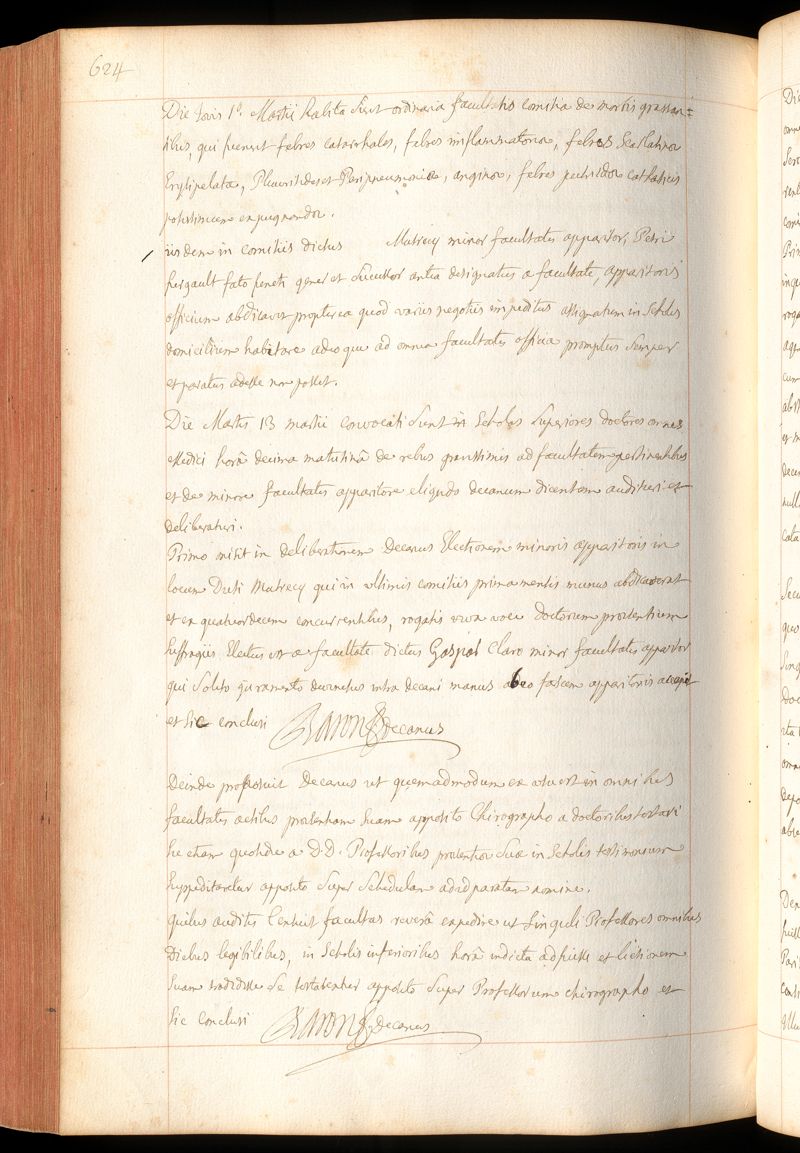 624
Die Jovis 1º. Martii habita sunt ordinaria facultatis comitia de morbis grassan=
tibus, qui fuerunt febres catarrhales, febres inflammatoriæ, febres Scarlatina
Erysipelata, Pleuritides et Peripneumoniæ, anginæ, febres putridæ catharticis
potissimum expugnandæ.
iisdem in comitiis dictus Matrecy minor facultatis apparitor, Petri
pergault fato functi gener et successor antea designatus a facultate, apparitoris
officium abdicavit propterea quod variis negotiis impeditus assignatum in Scholis
domicilium habitare adeoque ad omnia facultatis officia promptus semper
et paratus adesse non posset.
Die Martis 13 martii convocati sunt in Scholas Superiores doctores omnes
Medici horâ decima matutinâ de rebus gravissimis ad facultatem pertinentibus
et de minore facultatis apparitore eligendo decanum dicentem audituri et
deliberaturi.
Primo misit in deliberationem Decanus Electionem minoris apparitoris in
locum Dicti Matrecy qui in ultimis comitiis prima mensis munus abdicaverat
et ex quatuordecim concurrentibus, rogatis viva voce doctorum præsentium
suffragiis Electus est a facultate dictus Gaspar Claro minor facultatis apparitor
qui solito juramento devinctus intra decani manus fascem apparitoris accepit
et sic conclusi Baron decanus
Deinde proposuit Decanus ut quemadmodum ex in omnibus
facultatis actibus præsentiam suam apposito Chirographo a doctoribus testari
sic etiam quotidie a D.D. Professoribus præsentiæ suæ in Scholis testimonium
suppeditaretur apposito super Schedulam ad id paratam nomine.
Quibus auditis censuit facultas reverâ expedire ut singuli Professores omnibus
Diebus legibilibus, in Scholis inferioribus horâ indicta adfuisse et lectionem
suam tradidisse se testarentur apposito super Professorum chirographo et
sic conclusi Baron decanus